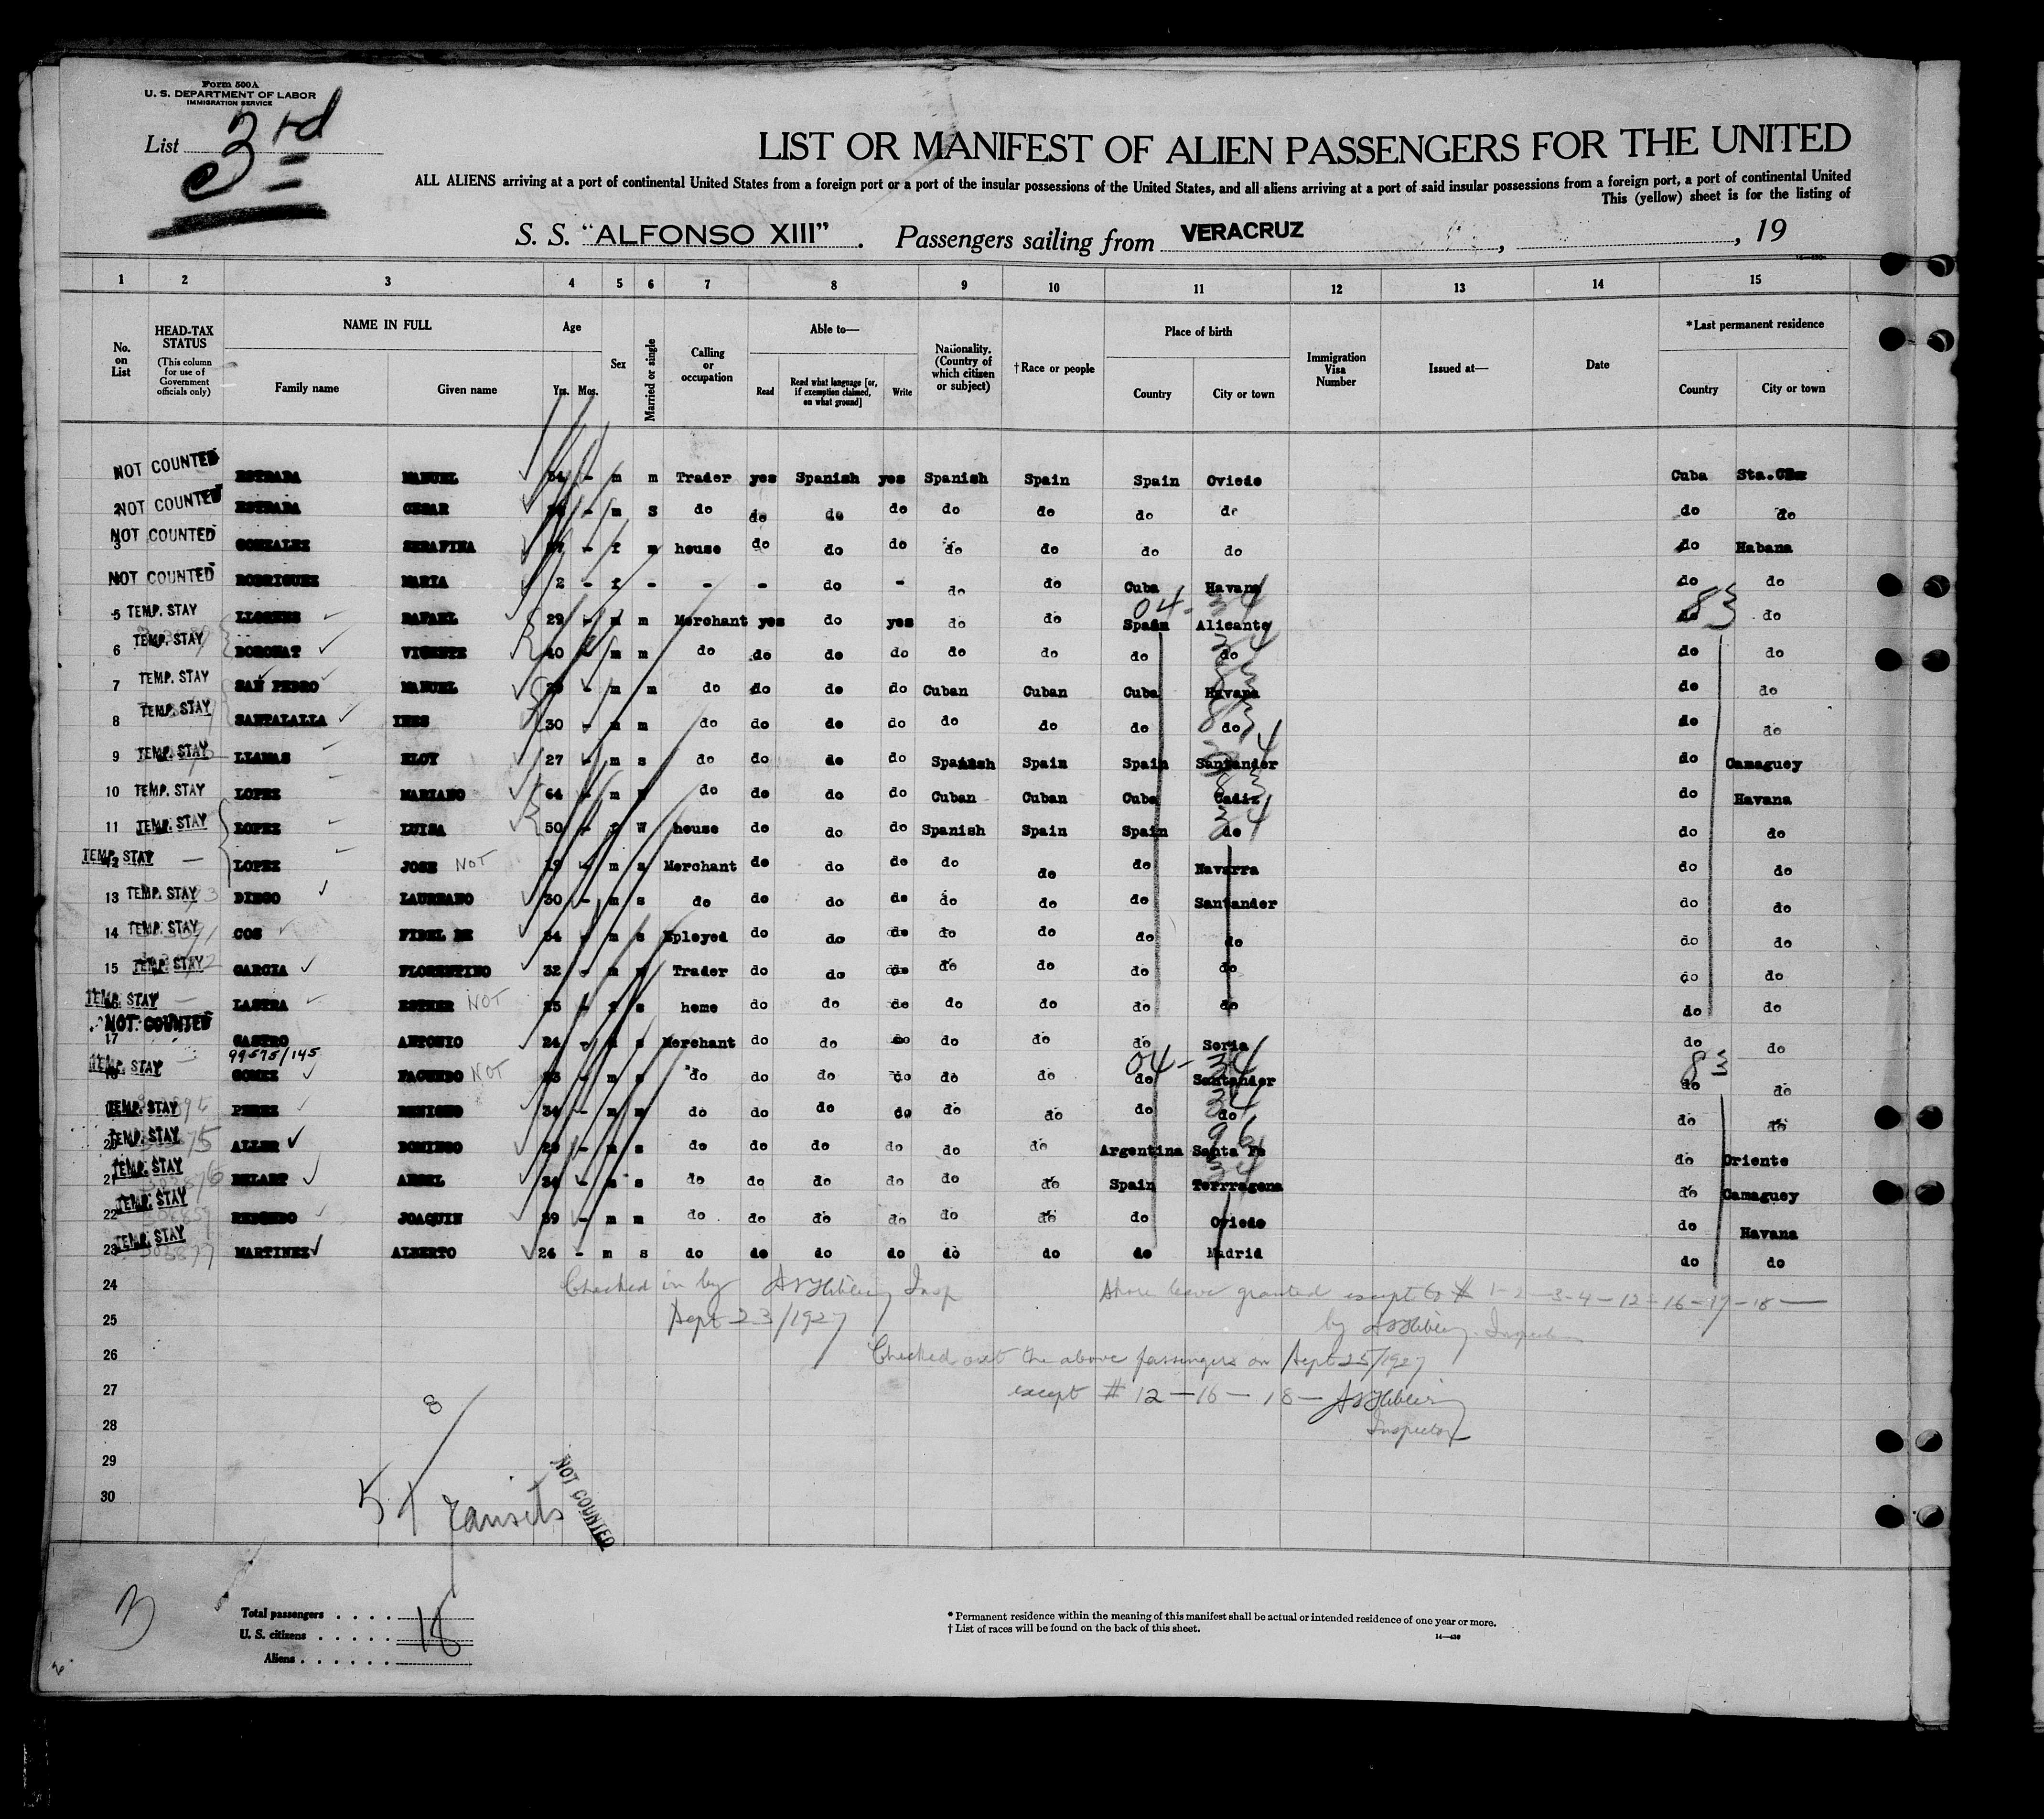 Form 500A
U. S. DEPARTMENT OF LABOR
IMMIGRATION SERVICE
List 3rd
LIST OR MANIFEST OF ALIEN PASSENGERS FOR THE UNITED
ALL ALIENS arriving at a port of continental United States from a foreign port or a port of the insular possessions of the United States, and all aliens arriving at a port of said insular possessions from a foreign port, a port of continental United
This (yellow) sheet is for the listing of
S. S. "ALFONSO XIII". Passengers sailing from VERACRUZ , , 19
1 2 3 4 5 6 7 8 9 10 11 12 13 14 15
No. on List
HEAD-TAX STATUS (This column for use of Government officials only)
NAME IN FULL Family name Given name
Age Yrs. Mos.
Sex
Married or single
Calling or occupation
Able to— Read Read what language [or, if exemption claimed, on what ground] Write
Nationality. (Country of which citizen or subject)
†Race or people
Place of birth Country City or town
Immigration Visa Number
Issued at—
Date
*Last permanent residence Country City or town
NOT COUNTED ESTRADA MANUEL 54 - m m Trader yes Spanish yes Spanish Spain Spain Oviedo Cuba Sta.
2 NOT COUNTED ESTRADA CESAR - m S do do do do do do do do do do
3 NOT COUNTED GONZALEZ SERAFINA - f m house do do do do do do do do Habana
NOT COUNTED RODRIGUEZ MARIA 2 - f - - - do - do do Cuba Havana do do
04-34 83
5 TEMP. STAY LLORENS RAFAEL 29 - m m Merchant yes do yes do do Spain Alicante do do
6 TEMP. STAY BORONAT VICENTE 40 - m m do do do do do do do do do do
7 TEMP. STAY SAN PEDRO MANUEL - m m do do do do Cuban Cuban Cuba Havana do do
8 TEMP. STAY SANTALALLA INES 30 - m m do do do do do do do do do do
9 TEMP. STAY LLAMAS ELOY 27 - m s do do do do Spanish Spain Spain Santander do Camaguey
10 TEMP. STAY LOPEZ MARIANO 64 - m do do do do Cuban Cuban Cuba Cadiz do Havana
11 TEMP. STAY LOPEZ LUISA 50 - f W house do do do Spanish Spain Spain do do do
12 TEMP. STAY LOPEZ JOSE NOT 19 - m s Merchant do do do do do do Navarra do do
13 TEMP. STAY DIEGO LAUREANO 30 - m s do do do do do do do Santander do do
14 TEMP. STAY COS FIDEL DE 34 - m s Eployed do do do do do do do do do
15 TEMP. STAY GARCIA FLORENTINO 32 - m Trader do do do do do do do do do
TEMP. STAY LASTRA ESTHER NOT 25 - f s home do do do do do do do do do
17 NOT COUNTED CASTRO ANTONIO 24 - s Merchant do do do do do do Soria do do
99575/145 04-34 83
18 TEMP. STAY GOMEZ FACUNDO NOT - m s do do do do do do do Santander do do
TEMP. STAY PEREZ BENIGNO 34 - m do do do do do do do do do do
20 TEMP. STAY ALLER DOMINGO 29 - m s do do do do do do Argentina Santa Fe do Oriente
21 TEMP. STAY ANGEL 34 - s do do do do do do Spain Terrragona do Camaguey
22 TEMP. STAY REDONDO JOAQUIN 39 - m m do do do do do do do Oviedo do Havana
23 TEMP. STAY MARTINEZ ALBERTO 26 - m s do do do do do do do Madrid do do
24 Checked in by Insp Shore leave granted except to # 1-2-3-4-12-16-17-18
25 Sept 23/1927 by Inspector
26 Checked out the above passengers on Sept 25/1927
27 except # 12-16-18-
28 Inspector
29
30
8
5 Transits
NOT COUNTED
3
Total passengers
U. S. citizens 18
Aliens
* Permanent residence within the meaning of this manifest shall be actual or intended residence of one year or more.
† List of races will be found on the back of this sheet.
14—430